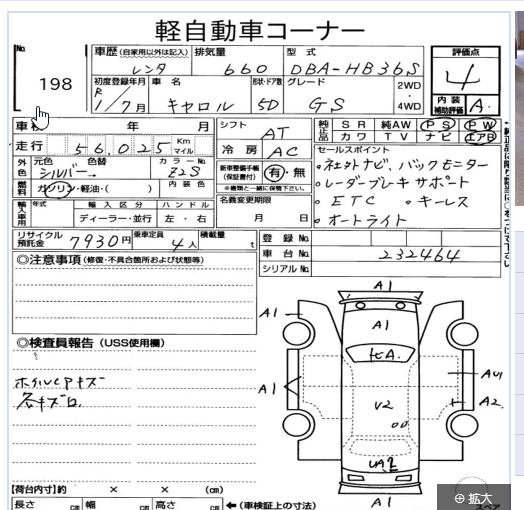 軽自動車コーナー
No. 198
車歴 (自家用以外は記入) レンタ
排気量 660
型式 DBA-HB36S
評価点 4
内装補助評価 A
初度登録年月 R1/7月
車名 キャロル
形状・ドア数 5D
グレード GS
2WD・4WD
車検 年 月
シフト AT
純正品 SR 純AW PS PW
カワ TV ナビ エアB
走行 56,025 Km マイル
冷房 AC
セールスポイント
・社外ナビ、バックモニター
・レーダーブレーキサポート
・ETC ・キーレス
・オートライト
外色 元色 シルバー→ 色替
カラーNo. Z2S
燃料 ガソリン・軽油・( ) 内装色
新車整備手帳(保証書付) 有・無
※書類と一緒に保管下さい。
輸入車用 年式 輸入区分 ハンドル
ディーラー・並行 左・右
名義変更期限 月 日
リサイクル預託金 7930円
乗車定員 4人
積載量 t
登録No.
車台No. 232464
シリアルNo.
◎注意事項 (修復・不具合箇所および状態等)
◎検査員報告 (USS使用欄)
ホイルCPキズ
各キズ
A1
A1
A1
A1
V2
UA2
AU1
A2
A1
【荷台内寸】約 × × (cm)
長さ cm 幅 cm 高さ cm
←(車検証上の寸法)
スペア
拡大